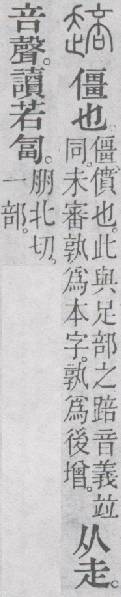 䞳 僵也。僵僨也。此與足部之踣音義竝
同。未審孰爲本字。孰爲後增。从走。
咅聲。讀若匐。朋北切。
一部。